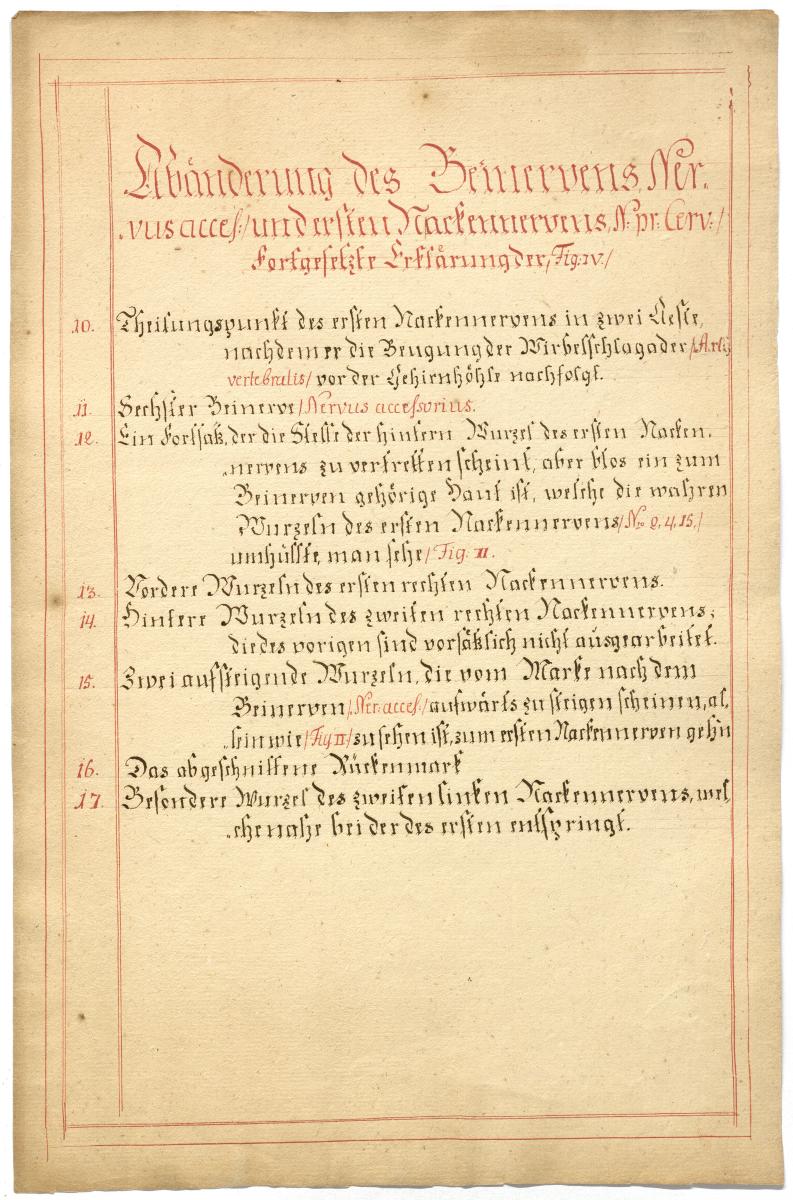 Abänderung des Beinervens, Ner-
-vus acces:/ und ersten Nackennervens, N: pr: Cerv:/
Fortgesetzte Erklärung der /Fig: IV./
10. Theilungspunkt des ersten Nackennervens in zwei Aeste,
nachdem er die Beugung der Wirbelschlagader /Art:
vertebralis/ vor der Gehirnhöhle nachfolgt.
11. Sechster Beinerve /Nervus accessorius.
12. Ein Fortsatz, der die Stelle der hintern Wurzel des ersten Nacken-
-nervens zu vertretten scheint, aber blos ein zum
Beinerven gehörige Haut ist, welche die wahren
Wurzeln des ersten Nackennervens /No 2, 4, 15,/
umhüllte, man sehe /Fig: II.
13. Vordere Wurzeln des ersten rechten Nackennervens.
14. Hintere Wurzeln des zweiten rechten Nackennervens;
die des vorigen sind vorsätzlich nicht ausgearbeitet.
15. Zwei aufsteigende Wurzeln, die vom Marke nach dem
Beinerven /Ner: acces:/ aufwärts zu steigen scheinen, al-
-lein wie /Fig II/ zu sehen ist, zum ersten Nackennerven gehn
16. Das abgeschnittene Rückenmark
17. Besondere Wurzel des zweiten linken Nackennervens, wel-
-che nahe bei der des ersten entspringt.